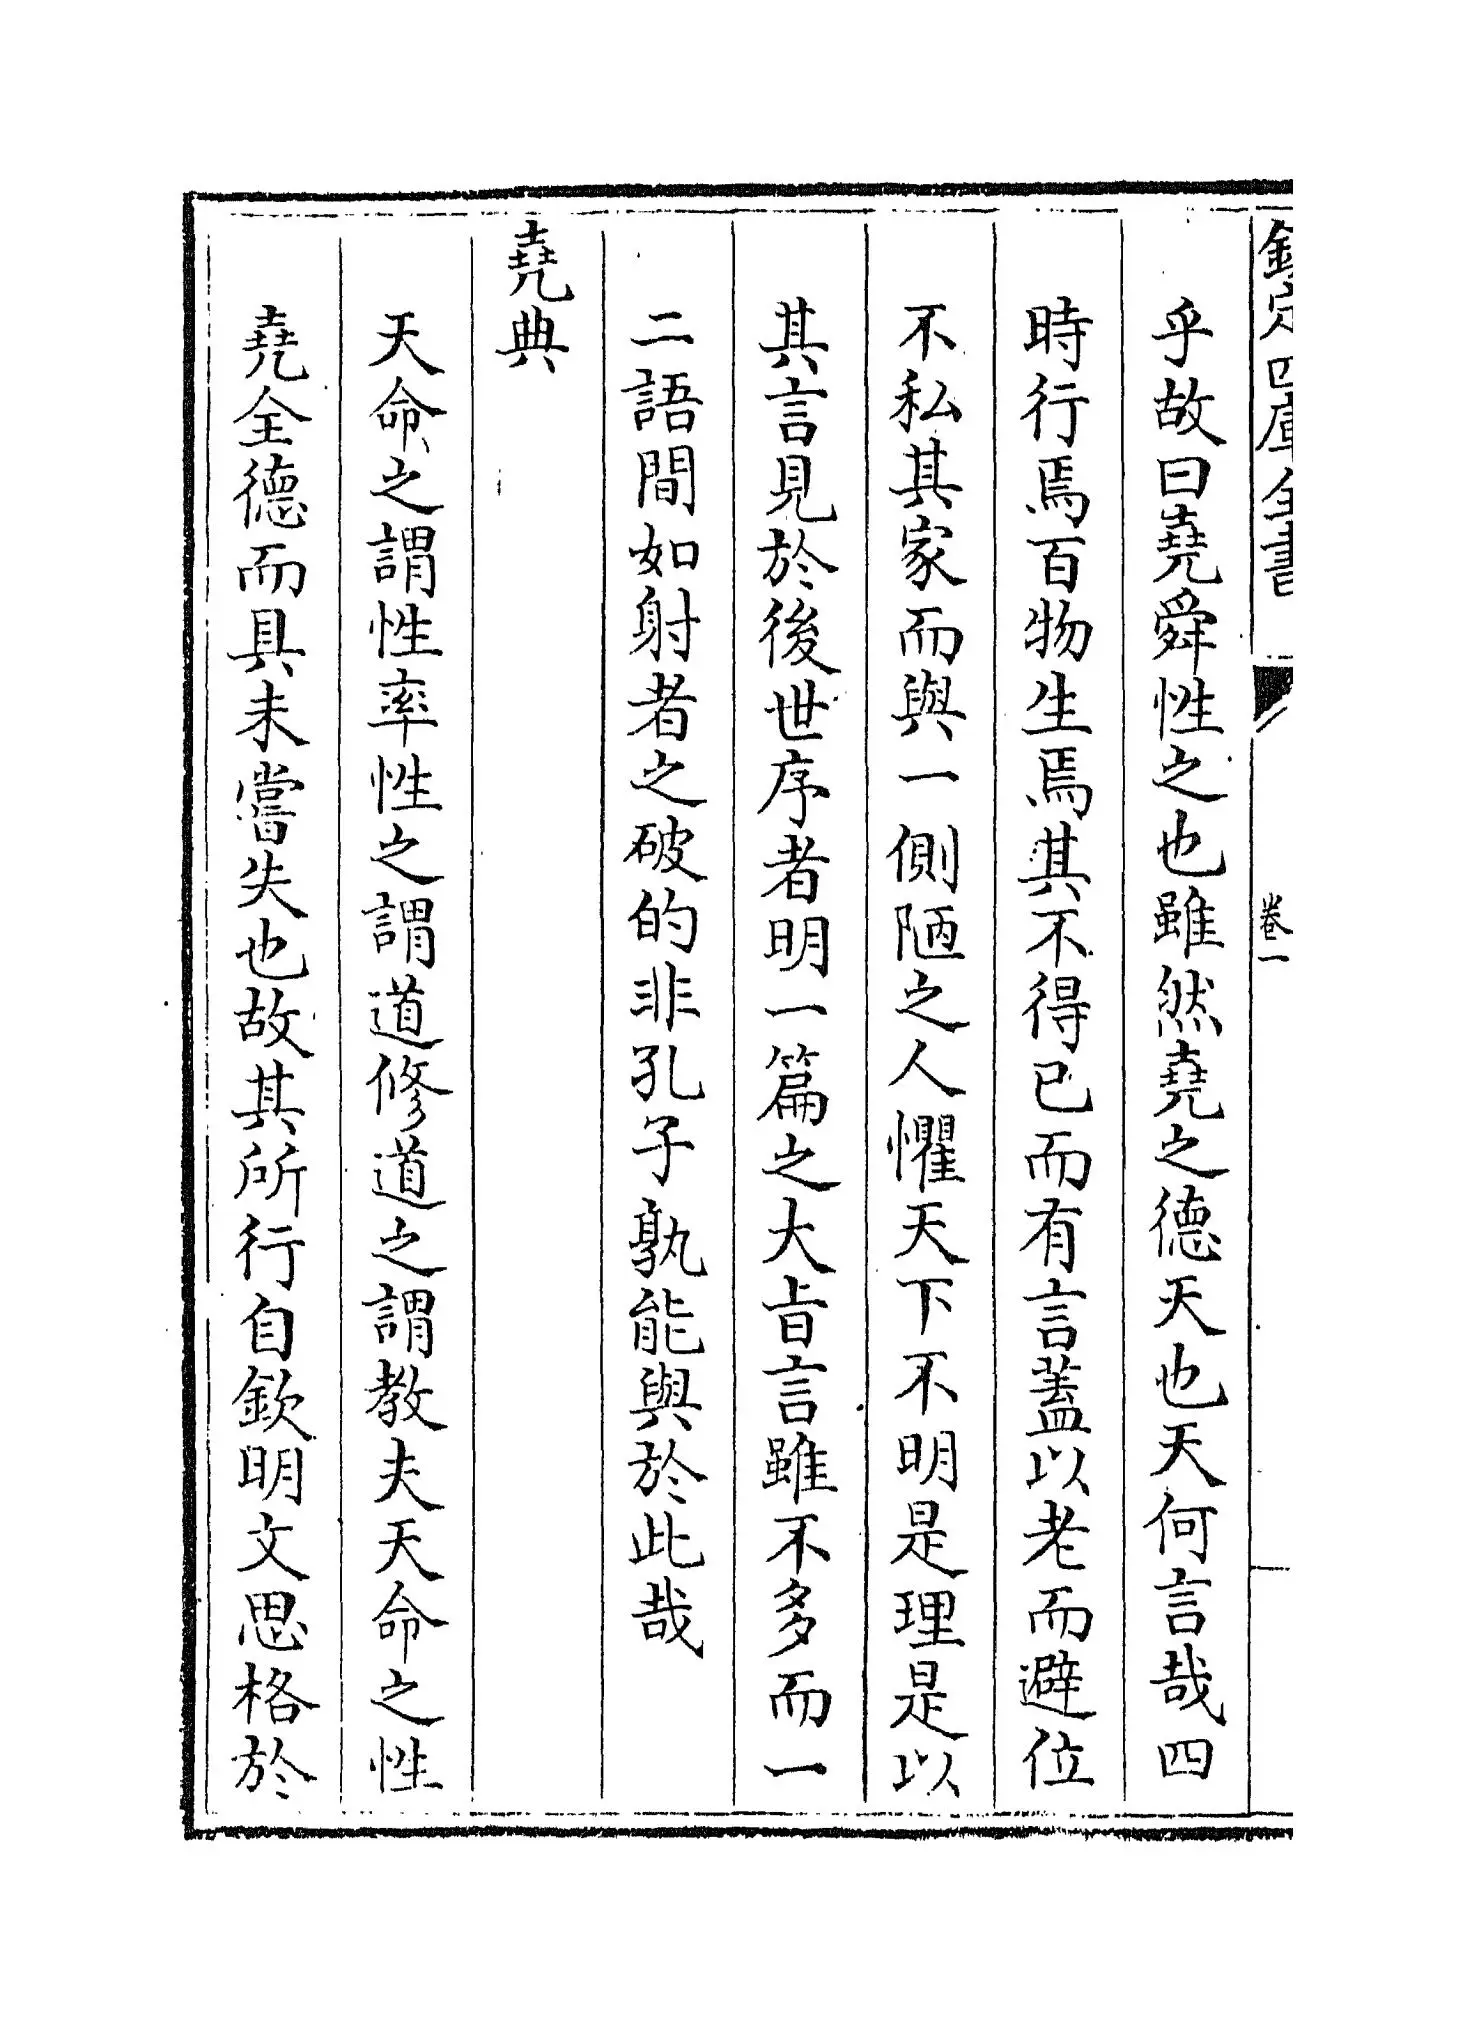 欽定四庫全書
卷一
乎故曰堯舜性之也雖然堯之德天也天何言哉四
時行焉百物生焉其不得已而有言蓋以老而避位
不私其家而與一側陋之人懼天下不明是理是以
其言見於後世序者明一篇之大旨言雖不多而一
二語間如射者之破的非孔子孰能與於此哉
堯典
天命之謂性率性之謂道修道之謂教夫天命之性
堯全德而具未嘗失也故其所行自欽明文思格於